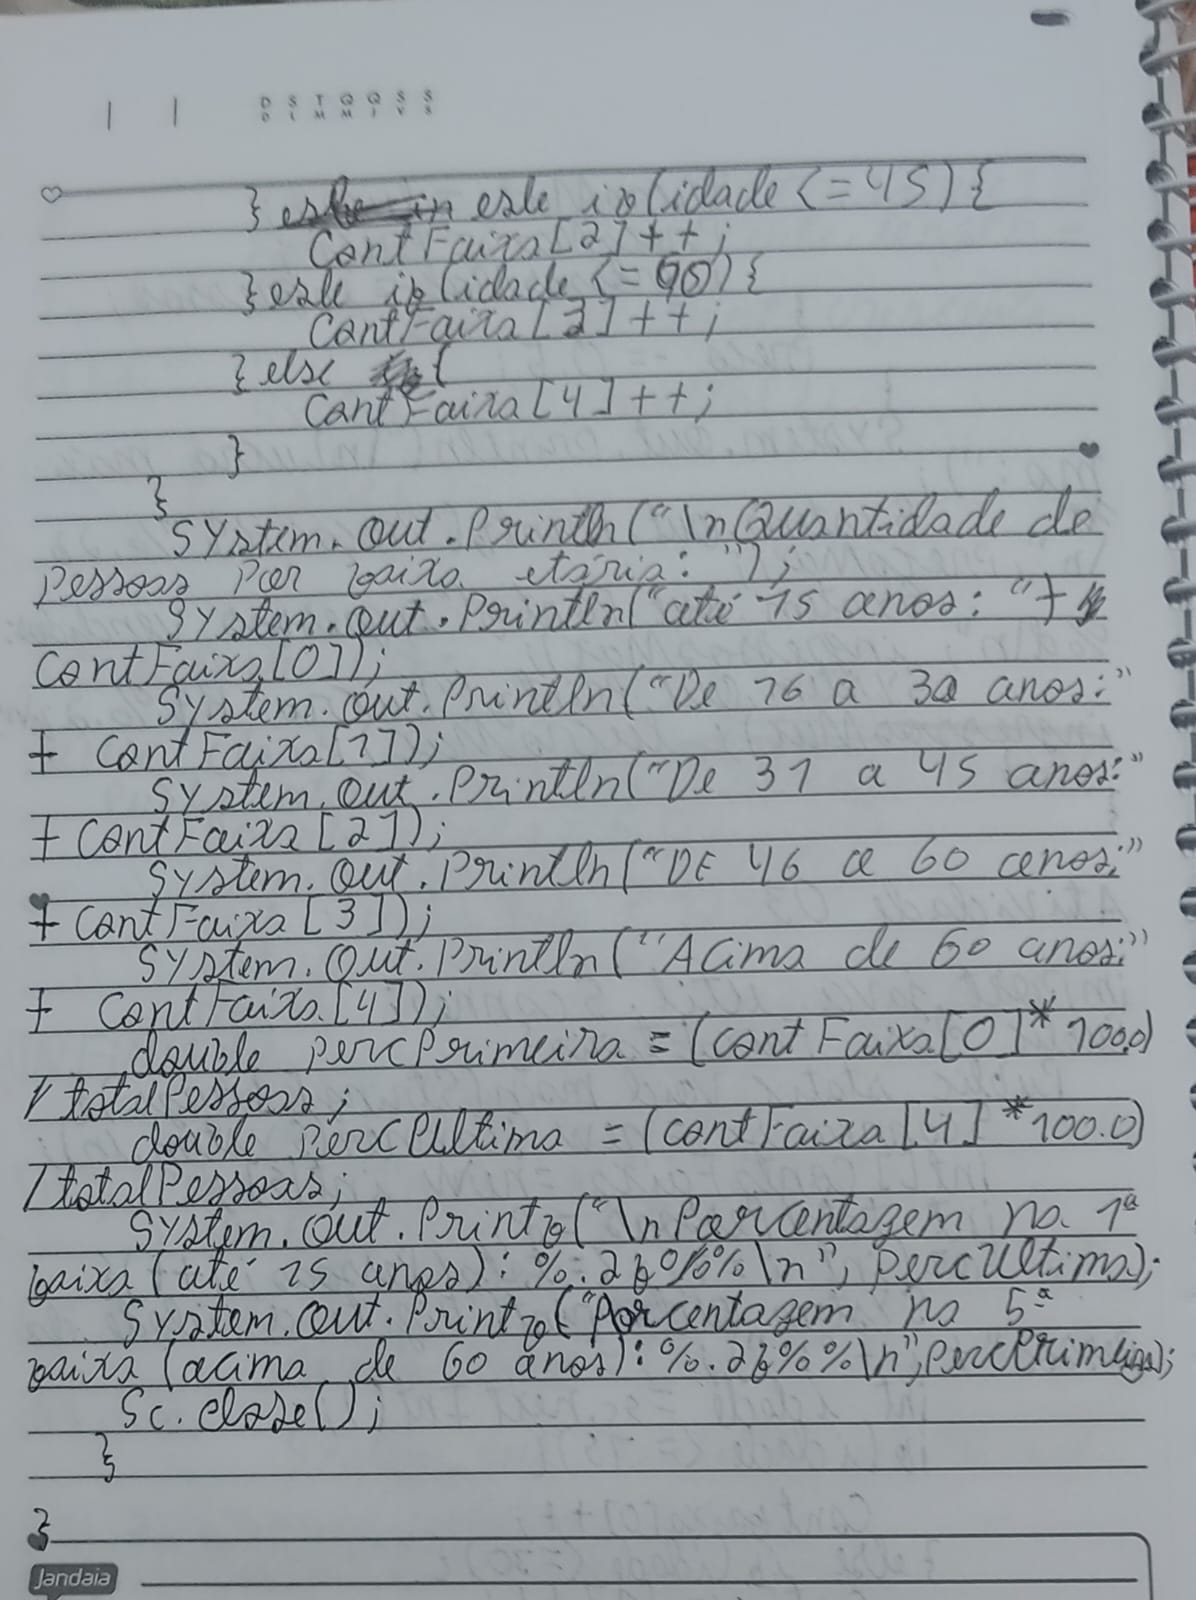 D S T Q Q S S
D L M M J V S
} else if (idade <= 45) {
contFaixa[2]++;
} else if (idade <= 60) {
contFaixa[3]++;
} else {
contFaixa[4]++;
}
}
System.out.println("\nQuantidade de
pessoas por faixa etária: ");
System.out.println("até 15 anos: " +
contFaixa[0]);
System.out.println("De 16 a 30 anos:"
+ contFaixa[1]);
System.out.println("De 31 a 45 anos:"
+ contFaixa[2]);
System.out.println("DE 46 a 60 anos:"
+ contFaixa[3]);
System.out.println("Acima de 60 anos:"
+ contFaixa[4]);
double percPrimeira = (contFaixa[0] * 100.0)
/ totalPessoas;
double percUltima = (contFaixa[4] * 100.0)
/ totalPessoas;
System.out.printf("\nPorcentagem na 1ª
faixa (até 15 anos): %.2f%%\n", percUltima);
System.out.printf("Porcentagem na 5ª
faixa (acima de 60 anos): %.2f%%\n", percPrimeira);
Sc.close();
}
}
Jandaia